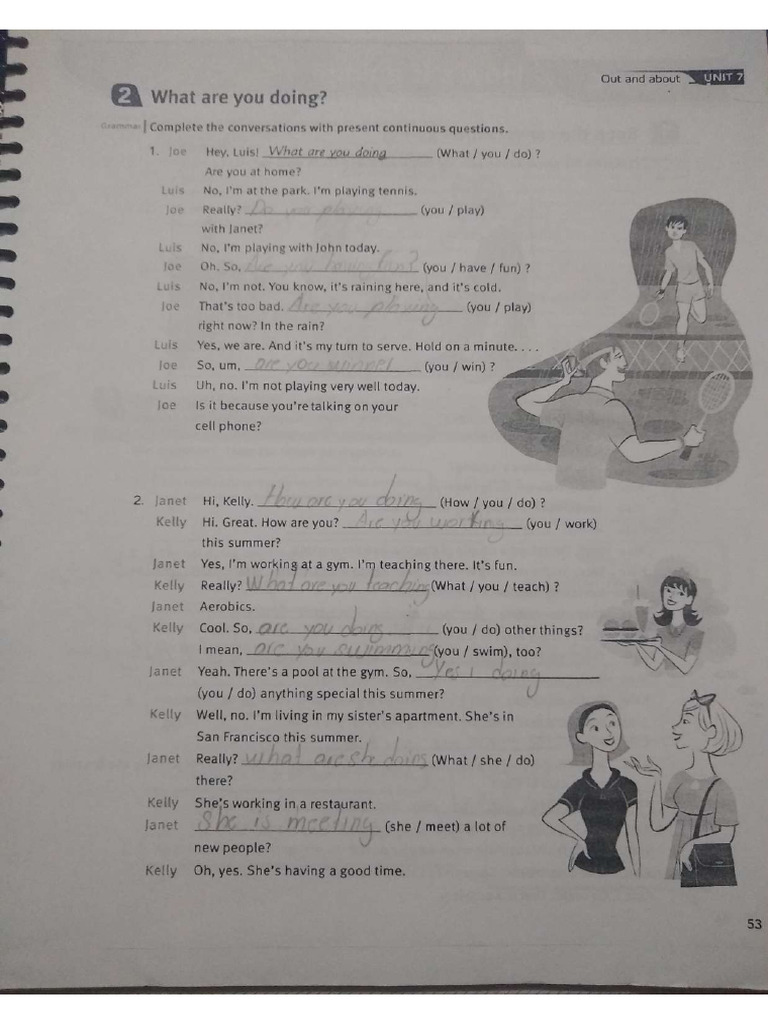 Out and about UNIT 7
2 What are you doing?
Grammar Complete the conversations with present continuous questions.
1. Joe Hey, Luis! What are you doing (What / you / do) ?
Are you at home?
Luis No, I'm at the park. I'm playing tennis.
Joe Really? Do you playing (you / play)
with Janet?
Luis No, I'm playing with John today.
Joe Oh. So, Are you having fun? (you / have / fun) ?
Luis No, I'm not. You know, it's raining here, and it's cold.
Joe That's too bad. Are you playing (you / play)
right now? In the rain?
Luis Yes, we are. And it's my turn to serve. Hold on a minute. . . .
Joe So, um, are you (you / win) ?
Luis Uh, no. I'm not playing very well today.
Joe Is it because you're talking on your
cell phone?
2. Janet Hi, Kelly. How are you doing (How / you / do) ?
Kelly Hi. Great. How are you? Are you working (you / work)
this summer?
Janet Yes, I'm working at a gym. I'm teaching there. It's fun.
Kelly Really? What are you teaching (What / you / teach) ?
Janet Aerobics.
Kelly Cool. So, are you doing (you / do) other things?
I mean, are you swimming (you / swim), too?
Janet Yeah. There's a pool at the gym. So, Yes i doing
(you / do) anything special this summer?
Kelly Well, no. I'm living in my sister's apartment. She's in
San Francisco this summer.
Janet Really? what are she doing (What / she / do)
there?
Kelly She's working in a restaurant.
Janet She is meeting (she / meet) a lot of
new people?
Kelly Oh, yes. She's having a good time.
53